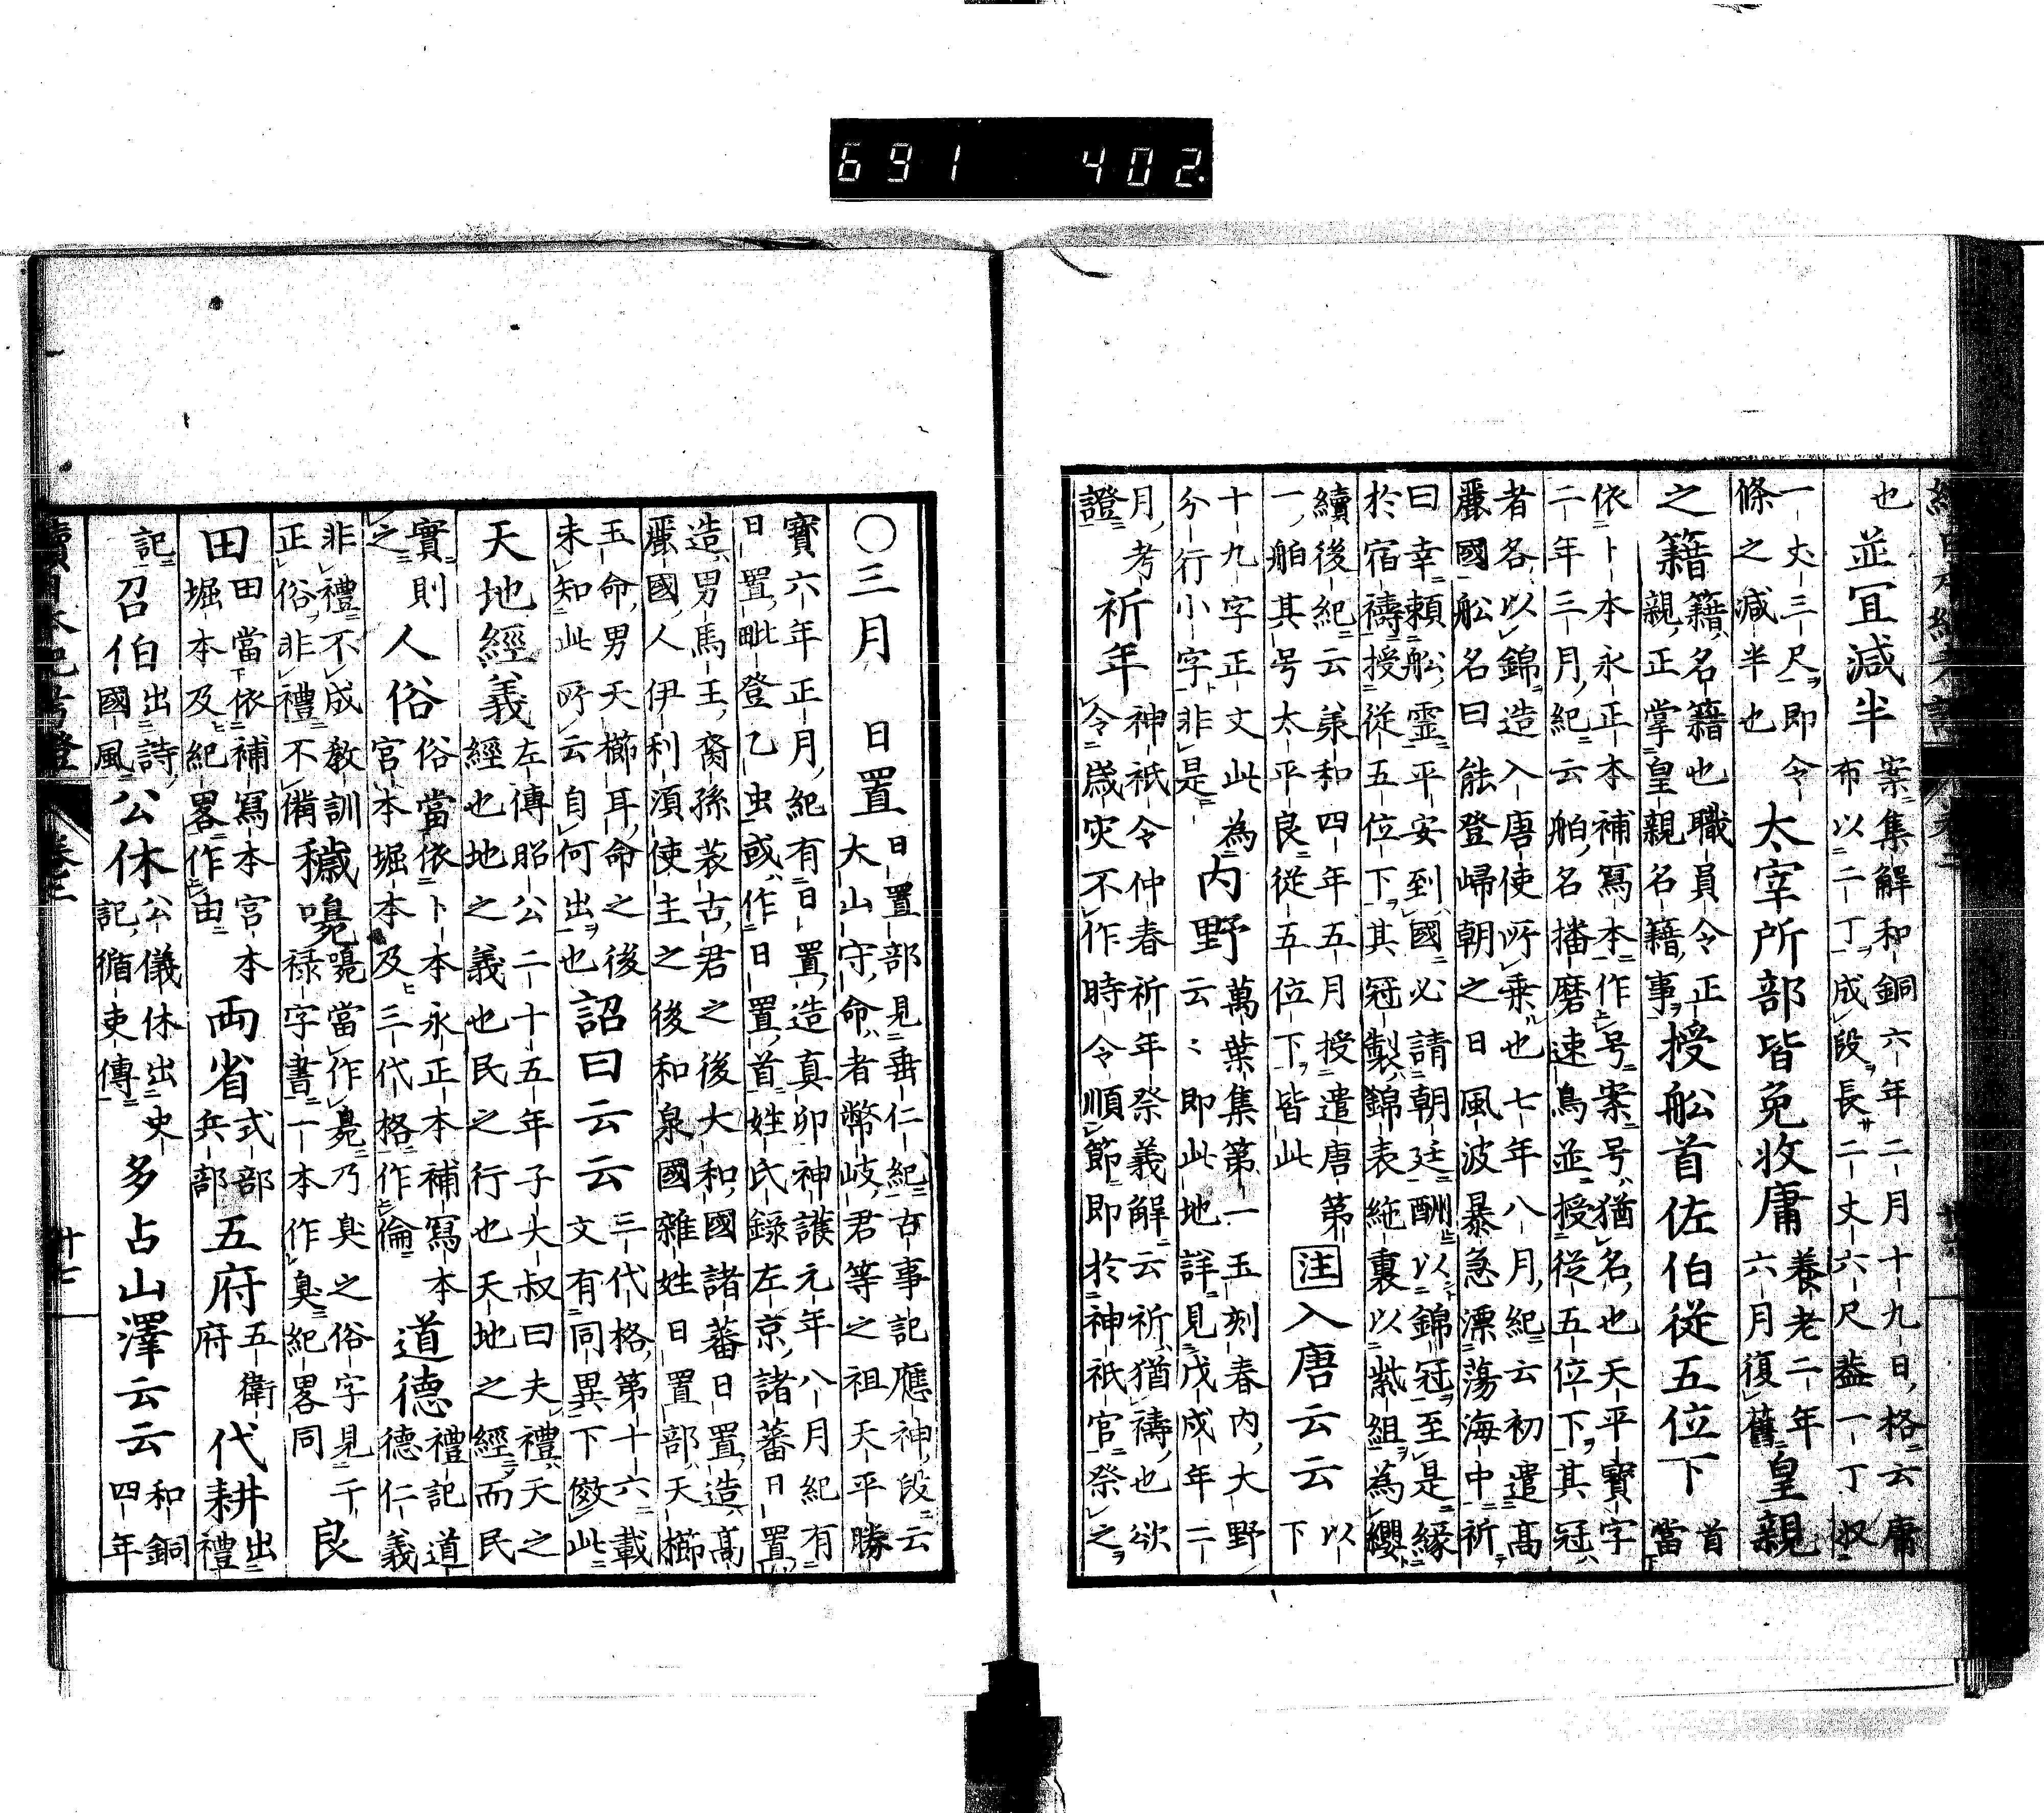 691 402
也並冝減半案集解和銅六年二月十九日格云庸
布以二丁成段長二丈六尺葢一丁収
一丈三尺即令
條之減半也太宰所部皆免收庸養老二年
六月復舊皇親
之籍籍名籍也職員令正
親正掌皇親名籍事授舩首佐伯從五位下首
當
依卜本永正本補寫本作号案号猶名也天平寶字
二年三月紀云舶名播磨速鳥並授從五位下其冠
者各以錦造入唐使所乗也七年八月紀云初遣髙
麗國舩名曰能登歸朝之日風波暴急漂蕩海中祈
曰幸頼舩霊平安到國必請朝廷酬以錦冠至是緣
於宿禱授從五位下其冠製錦表絁裏以紫組為纓
續後紀云兼和四年五月授遣唐第
一舶其号太平良從五位下皆此注入唐云云以
下
十九字正文此為
分行小字非是内野萬葉集第一玉刻春内大野
云〻即此地詳見戊戌年二
月考
證祈年神祇令仲春祈年祭義解云祈猶禱也欲
令歳灾不作時令順節即於神祇官祭之
○三月 日置日置部見垂仁紀古事記應神段云
大山守命者幣岐君等之祖天平勝
寳六年正月紀有日置造真卯神護元年八月紀有
日置毗登乙虫或作日置首姓氏録左京諸蕃日置
造男馬王裔孫菉古君之後大和國諸蕃日置造髙
麗國人伊利湏使主之後和泉國雜姓日置部天櫛
玉命男天櫛耳命之後
未知此所云自何出也詔曰云云三代格第十六載
文有同異下傚此
天地經義左傳昭公二十五年子大叔曰夫禮天之
經也地之義也民之行也天地之經而民
實則
之人俗俗當依卜本永正本補寫本
宮本堀本及三代格作倫道德禮記道
德仁義
非禮不成教訓
正俗非禮不備穢㗟㗟當作臰乃臭之俗字見干
禄字書一本作臭紀畧同良
田田當依補寫本宮本
堀本及紀畧作由両省式部
兵部五府五衛
府代耕出
禮
記召伯出詩
國風公休公儀休出史
記循吏傳多占山澤云云和銅
四年
續日本紀考證 卷三 十七